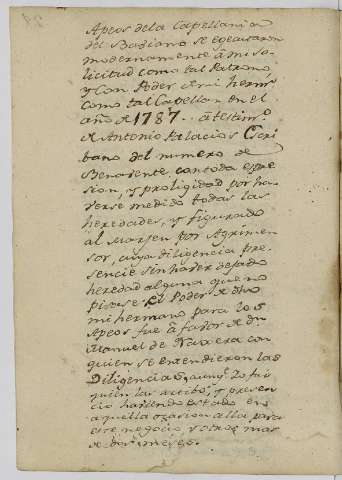 Apeos dela Capellania
del Badiano se egecutaron
modernamente à mi so
licitud como tal Patrono,
y con Poder de mi hermº
como tal Capellan en el
año de 1787. à testimº
de Antonio Palacios Escri
bano del numero de
Benavente, con toda expre
sion, y proligidad por ha
verse medido todas las
heredades, y figurado
al margen por Agrimen
sor, cuya diligencia pre
sencie sin haver dejado
heredad alguna que no
pisase. el Poder de dho
mi hermano para los
Apeos fue à favor de dn
Manuel de Navas con
quien se entendieron las
Diligencias, aunqe. Yo fui
quien las activo, y presen
cio haviendo estado en
aquella ocasion alla para
este negocio, y otros mas
de dos meses.